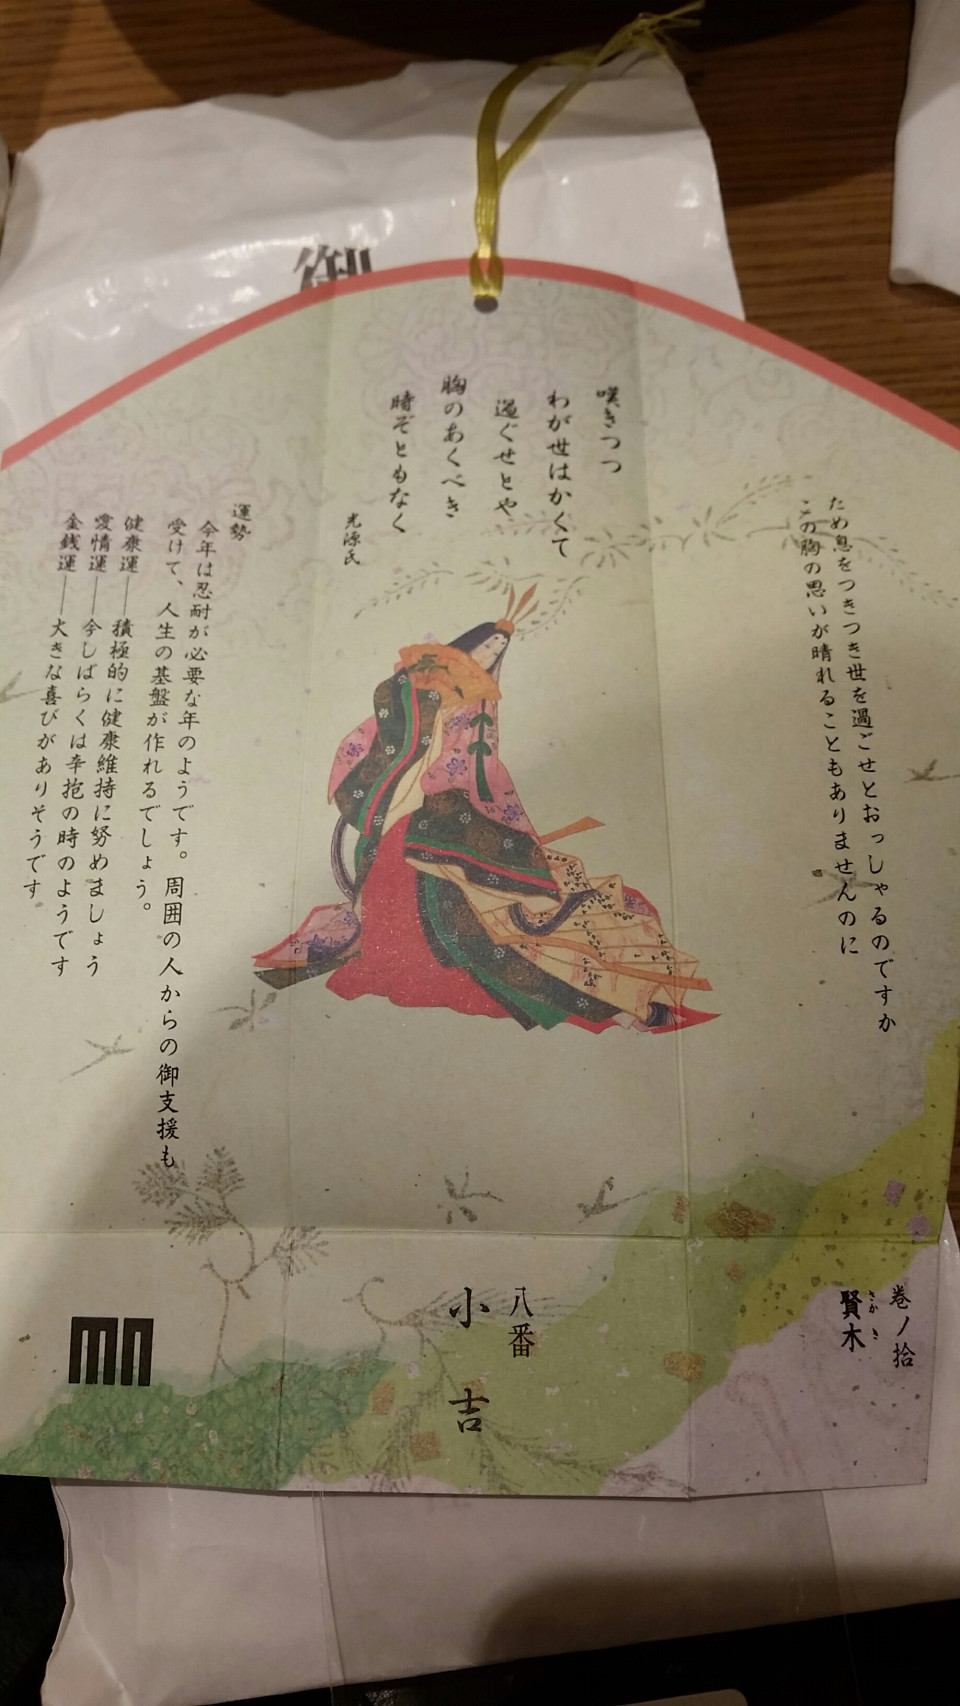 御
ため息をつきつき世を過ごせとおっしゃるのですか
この胸の思いが晴れることもありませんのに
嘆きつつ
わが世はかくて
過ぐせとや
胸のあくべき
時ぞともなく
光源氏
運勢
今年は忍耐が必要な年のようです。周囲の人からの御支援も
受けて、人生の基盤が作れるでしょう。
健康運―積極的に健康維持に努めましょう
愛情運―今しばらくは辛抱の時のようです
金銭運―大きな喜びがありそうです
巻ノ拾
賢木
さかき
八番
小吉